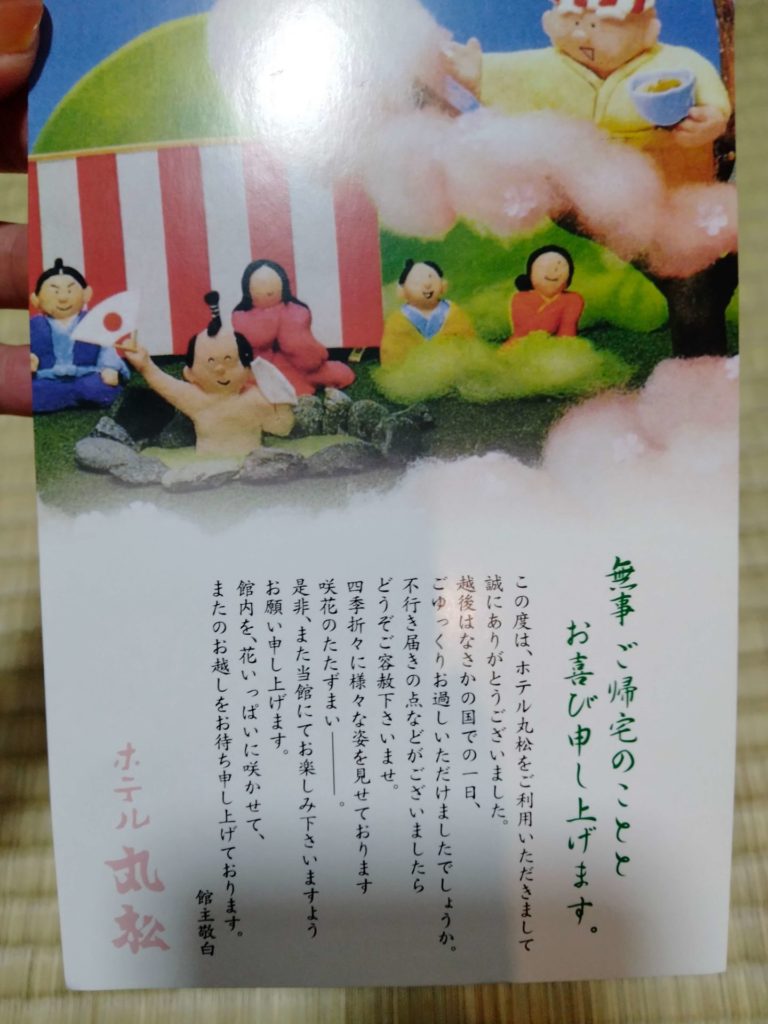 無事ご帰宅のことと
お喜び申し上げます。
この度は、ホテル丸松をご利用いただきまして
誠にありがとうございました。
越後はなさかの国での一日、
ごゆっくりお過しいただけましたでしょうか。
不行き届きの点などがございましたら
どうぞご容赦下さいませ。
四季折々に様々な姿を見せております
咲花のたたずまい――――。
是非、また当館にてお楽しみ下さいますよう
お願い申し上げます。
館内を、花いっぱいに咲かせて、
またのお越しをお待ち申し上げております。
館主敬白
ホテル丸松